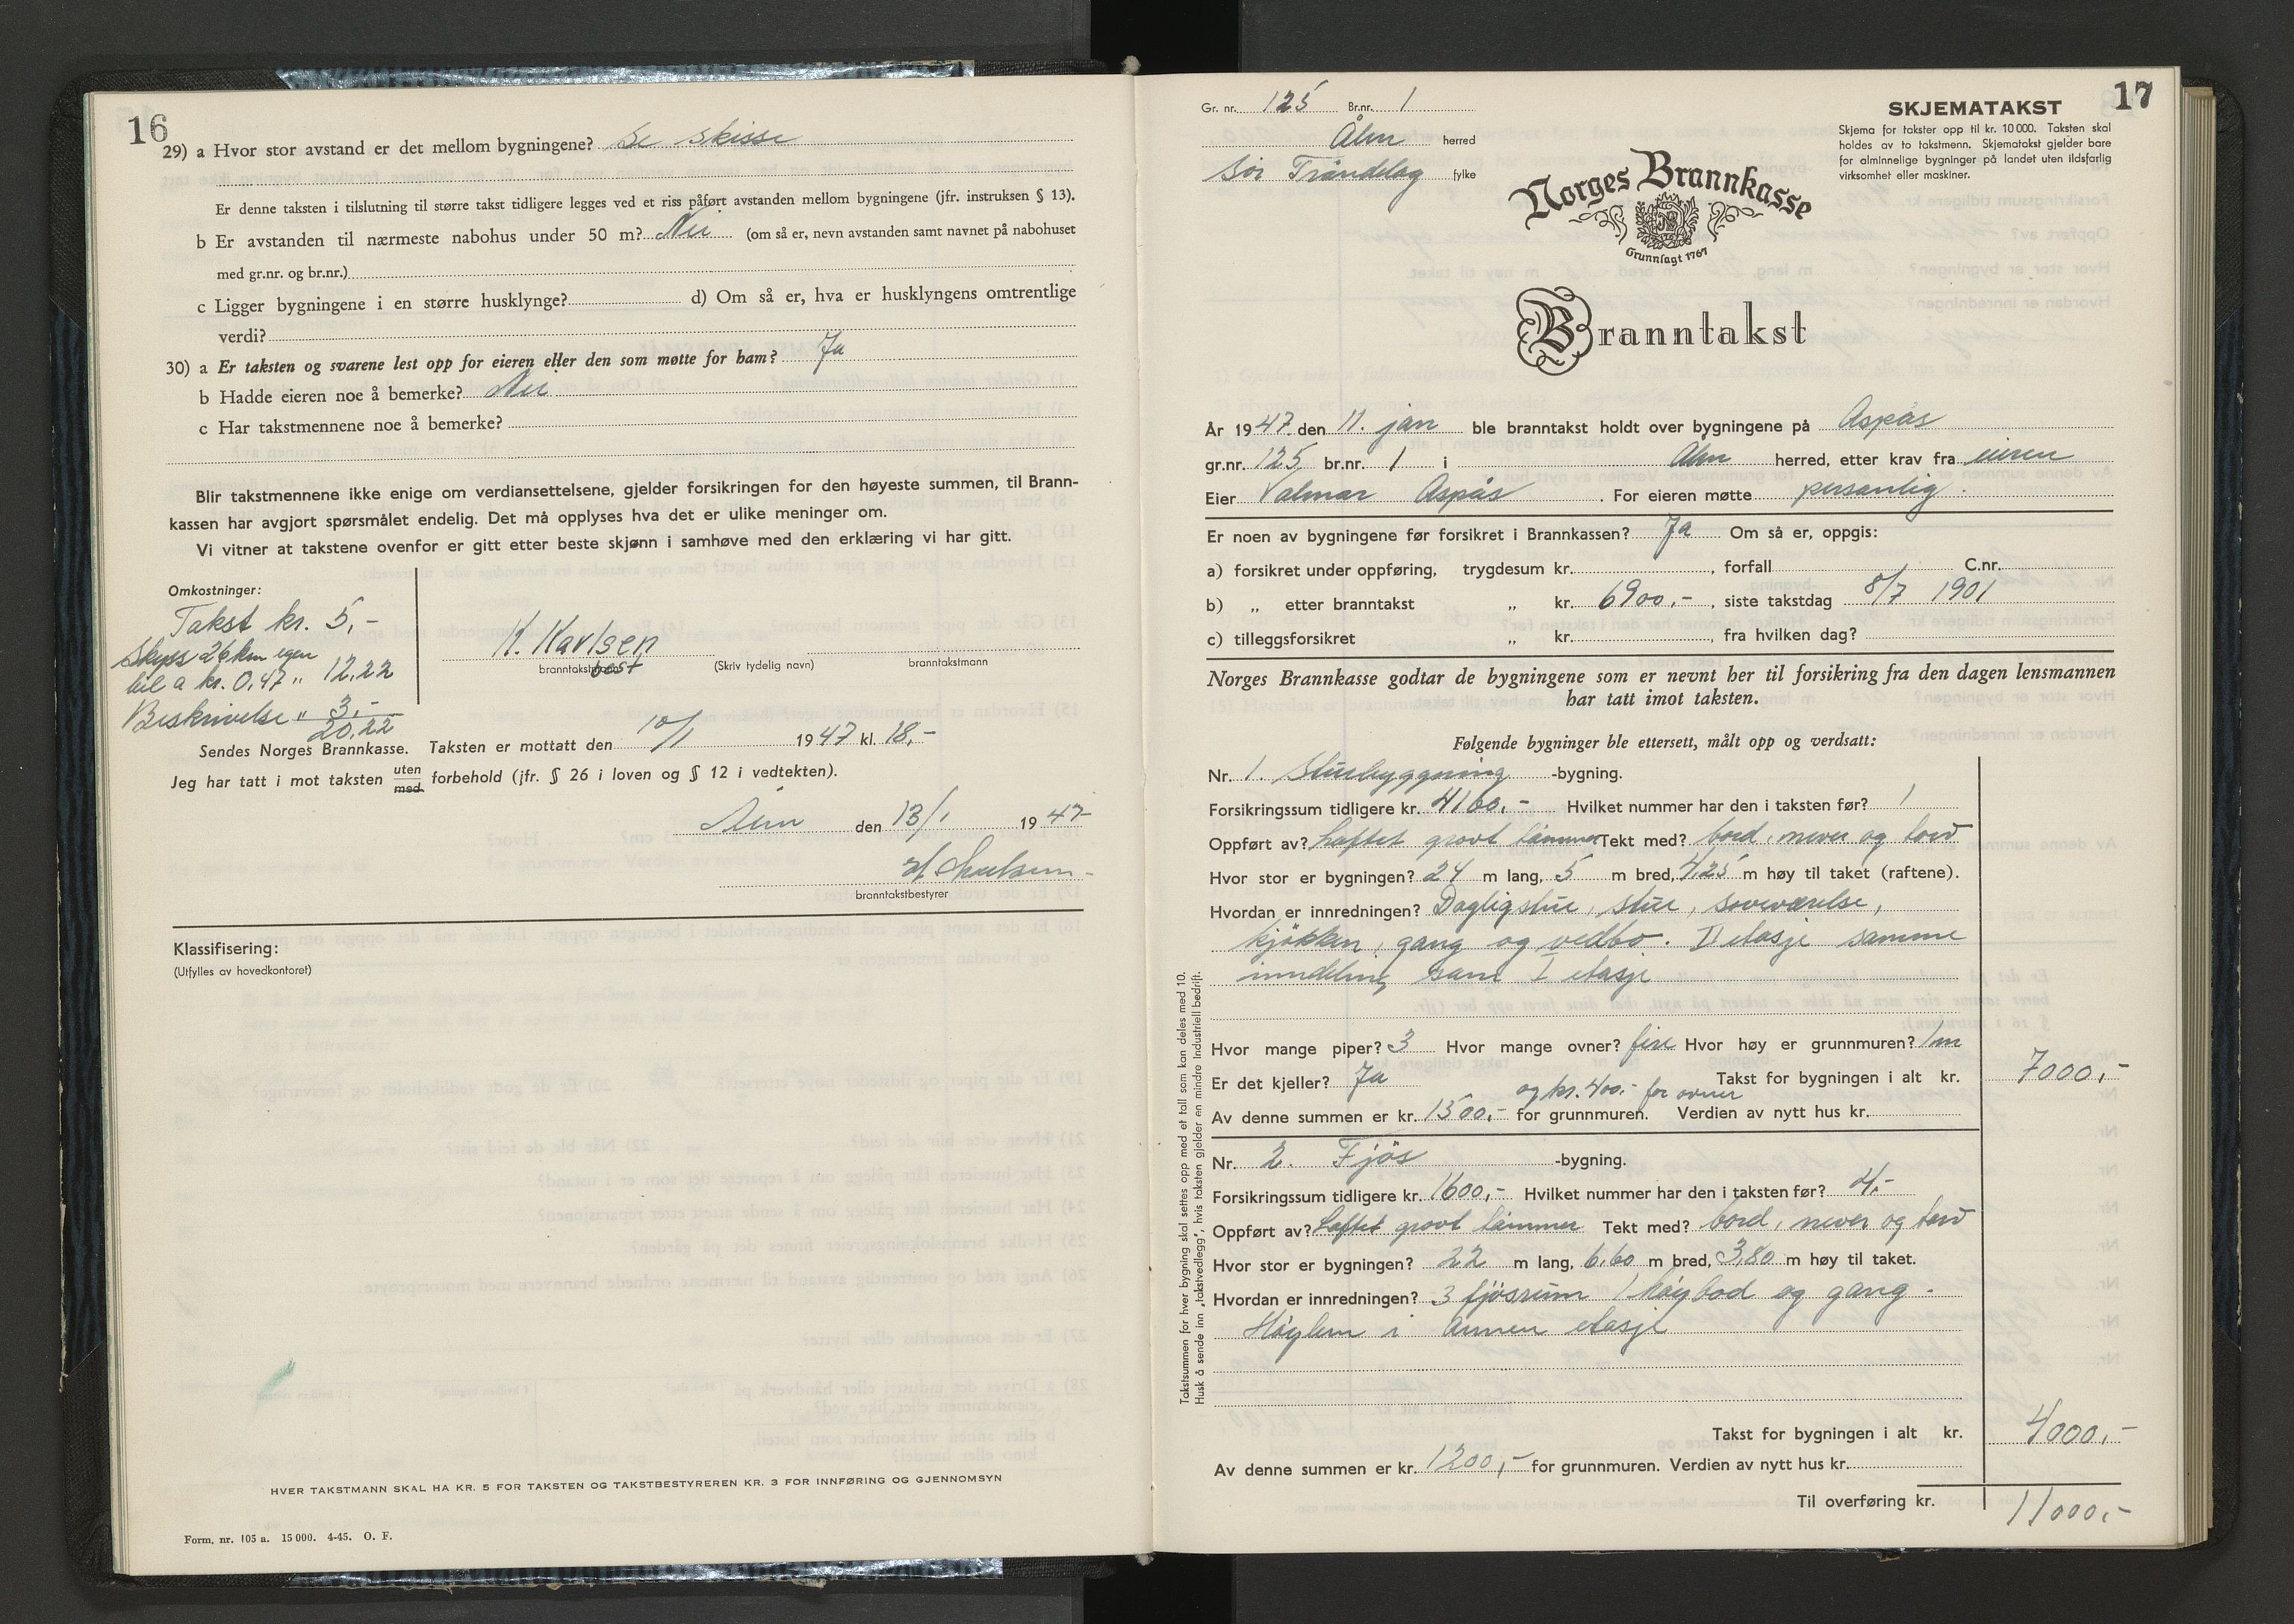 16
29) a Hvor stor avstand er det mellom bygningene? Se skisse
Er denne taksten i tilslutning til større takst tidligere legges ved et riss påført avstanden mellom bygningene (jfr. instruksen § 13).
b Er avstanden til nærmeste nabohus under 50 m? Nei (om så er, nevn avstanden samt navnet på nabohuset
med gr.nr. og br.nr.)
c Ligger bygningene i en større husklynge? d) Om så er, hva er husklyngens omtrentlige
verdi?
30) a Er taksten og svarene lest opp for eieren eller den som møtte for ham? Ja
b Hadde eieren noe å bemerke? Nei
c Har takstmennene noe å bemerke?
Blir takstmennene ikke enige om verdiansettelsene, gjelder forsikringen for den høyeste summen, til Brann-
kassen har avgjort spørsmålet endelig. Det må opplyses hva det er ulike meninger om.
Vi vitner at takstene ovenfor er gitt etter beste skjønn i samhøve med den erklæring vi har gitt.
Omkostninger:
Takst kr. 5,-
Skyss 26 km egen
bil a kr. 0,47 " 12,22
Beskrivelse " 3,-
20,22
K. Karlsen
branntakstmann best (Skriv tydelig navn) branntakstmann
Sendes Norges Brannkasse. Taksten er mottatt den 10/1 1947 kl. 18,-
Jeg har tatt i mot taksten uten med forbehold (jfr. § 26 i loven og § 12 i vedtekten).
Ålen den 13/1 1947
branntakstbestyrer
Klassifisering:
(Utfylles av hovedkontoret)
HVER TAKSTMANN SKAL HA KR. 5 FOR TAKSTEN OG TAKSTBESTYREREN KR. 3 FOR INNFØRING OG GJENNOMSYN
Form. nr. 105 a. 15 000. 4-45. O. F.
17
Gr. nr. 125 Br.nr. 1
Ålen herred
Sør Trøndelag fylke
SKJEMATAKST
Skjema for takster opp til kr. 10 000. Taksten skal
holdes av to takstmenn. Skjematakst gjelder bare
for alminnelige bygninger på landet uten ildsfarlig
virksomhet eller maskiner.
Norges Brannkasse
Grunnlagt 1767
Branntakst
År 1947 den 11. jan ble branntakst holdt over bygningene på Aspås
gr.nr. 125, br.nr. 1 i Ålen herred, etter krav fra eieren
Eier Valmar Aspås. For eieren møtte personlig.
Er noen av bygningene før forsikret i Brannkassen? Ja Om så er, oppgis:
a) forsikret under oppføring, trygdesum kr. , forfall C.nr.
b) „ etter branntakst „ kr. 6900,- , siste takstdag 8/7 1901
c) tilleggsforsikret „ kr. , fra hvilken dag?
Norges Brannkasse godtar de bygningene som er nevnt her til forsikring fra den dagen lensmannen
har tatt imot taksten.
Følgende bygninger ble ettersett, målt opp og verdsatt:
Nr. 1. Stuebyggning -bygning.
Forsikringssum tidligere kr. 4160,- Hvilket nummer har den i taksten før? 1
Oppført av? Laftet grovt tømmer Tekt med? bord, never og torv
Hvor stor er bygningen? 24 m lang, 5 m bred, 4,25 m høy til taket (raftene).
Hvordan er innredningen? Dagligstue, stue, soveværelse,
kjøkken, gang og vedbo. II etasje samme
inndeling som I etasje
Hvor mange piper? 3 Hvor mange ovner? fire Hvor høy er grunnmuren? 1 m
Er det kjeller? Ja Takst for bygningen i alt kr. 7000,-
og kr. 400,- for ovner
Av denne summen er kr. 1500,- for grunnmuren. Verdien av nytt hus kr.
Nr. 2. Fjøs -bygning.
Forsikringssum tidligere kr. 1600,- Hvilket nummer har den i taksten før? 4.-
Oppført av? Laftet grovt tømmer Tekt med? bord, never og torv
Hvor stor er bygningen? 22 m lang, 6,60 m bred, 3,80 m høy til taket.
Hvordan er innredningen? 3 fjøsrum 1 høybod og gang.
Høylem i annen etasje
Takst for bygningen i alt kr. 4000,-
Av denne summen er kr. 1200,- for grunnmuren. Verdien av nytt hus kr.
Til overføring kr. 11000,-
Takstsummen for hver bygning skal settes opp med et tall som kan deles med 10.
Husk å sende inn „takstvedlegg", hvis taksten gjelder en mindre industriell bedrift.